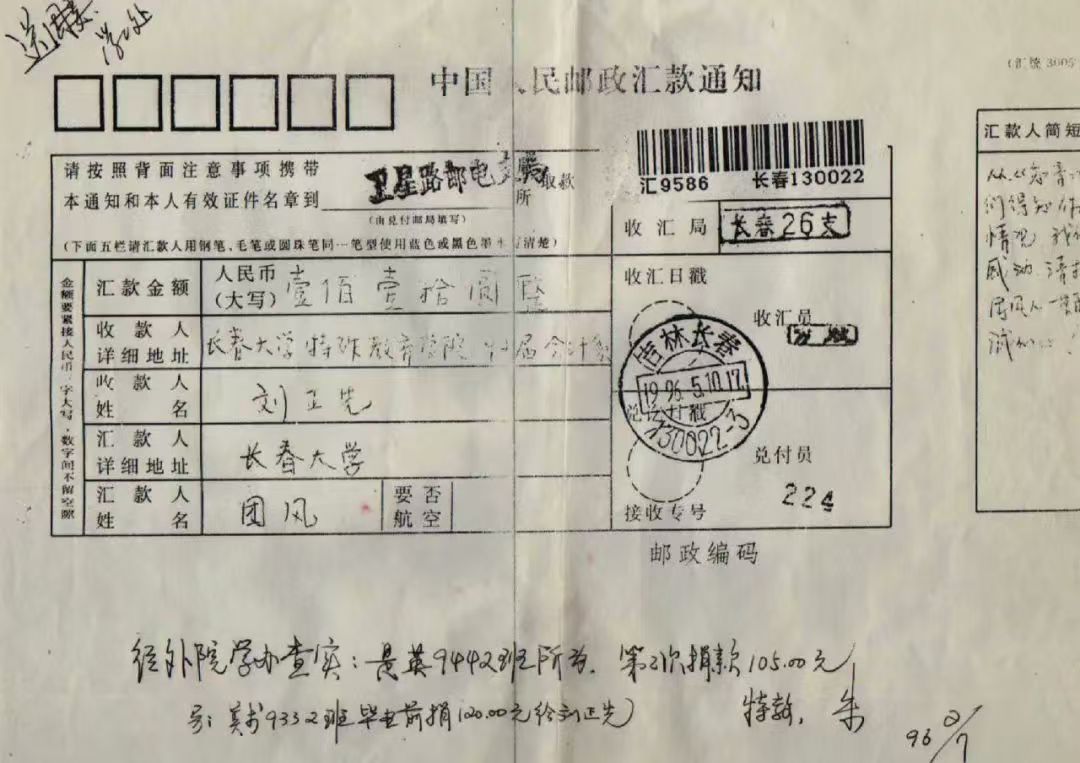 学工处
中国人民邮政汇款通知
(汇统3005
请按照背面注意事项携带
本通知和本人有效证件名章到 卫星路邮电支局 所 取款
(由兑付邮局填写)
(下面五栏请汇款人用钢笔、毛笔或圆珠笔同一笔型使用蓝色或黑色墨水 写清楚)
金额要紧接人民币 字大写,数字间不留空隙
汇款金额 人民币(大写) 壹佰壹拾圆整
收款人详细地址 长春大学特殊教育学院 届会计系
收款人姓名 刘正先
汇款人详细地址 长春大学
汇款人姓名 团风 要否航空
汇9586 长春130022
收汇局 长春26支
收汇日戳
收汇员
吉林长春
1996.5.10.17
130022-3
兑付日戳
兑付员
224
接收专号
邮政编码
汇款人简短
们得知
情况 我们
感动.请
经外院学办查实:是英9442班所为. 第2次捐款105.00元
另:美术9332班毕业前捐120.00元给刘正先)
特教,朱
96 2/7